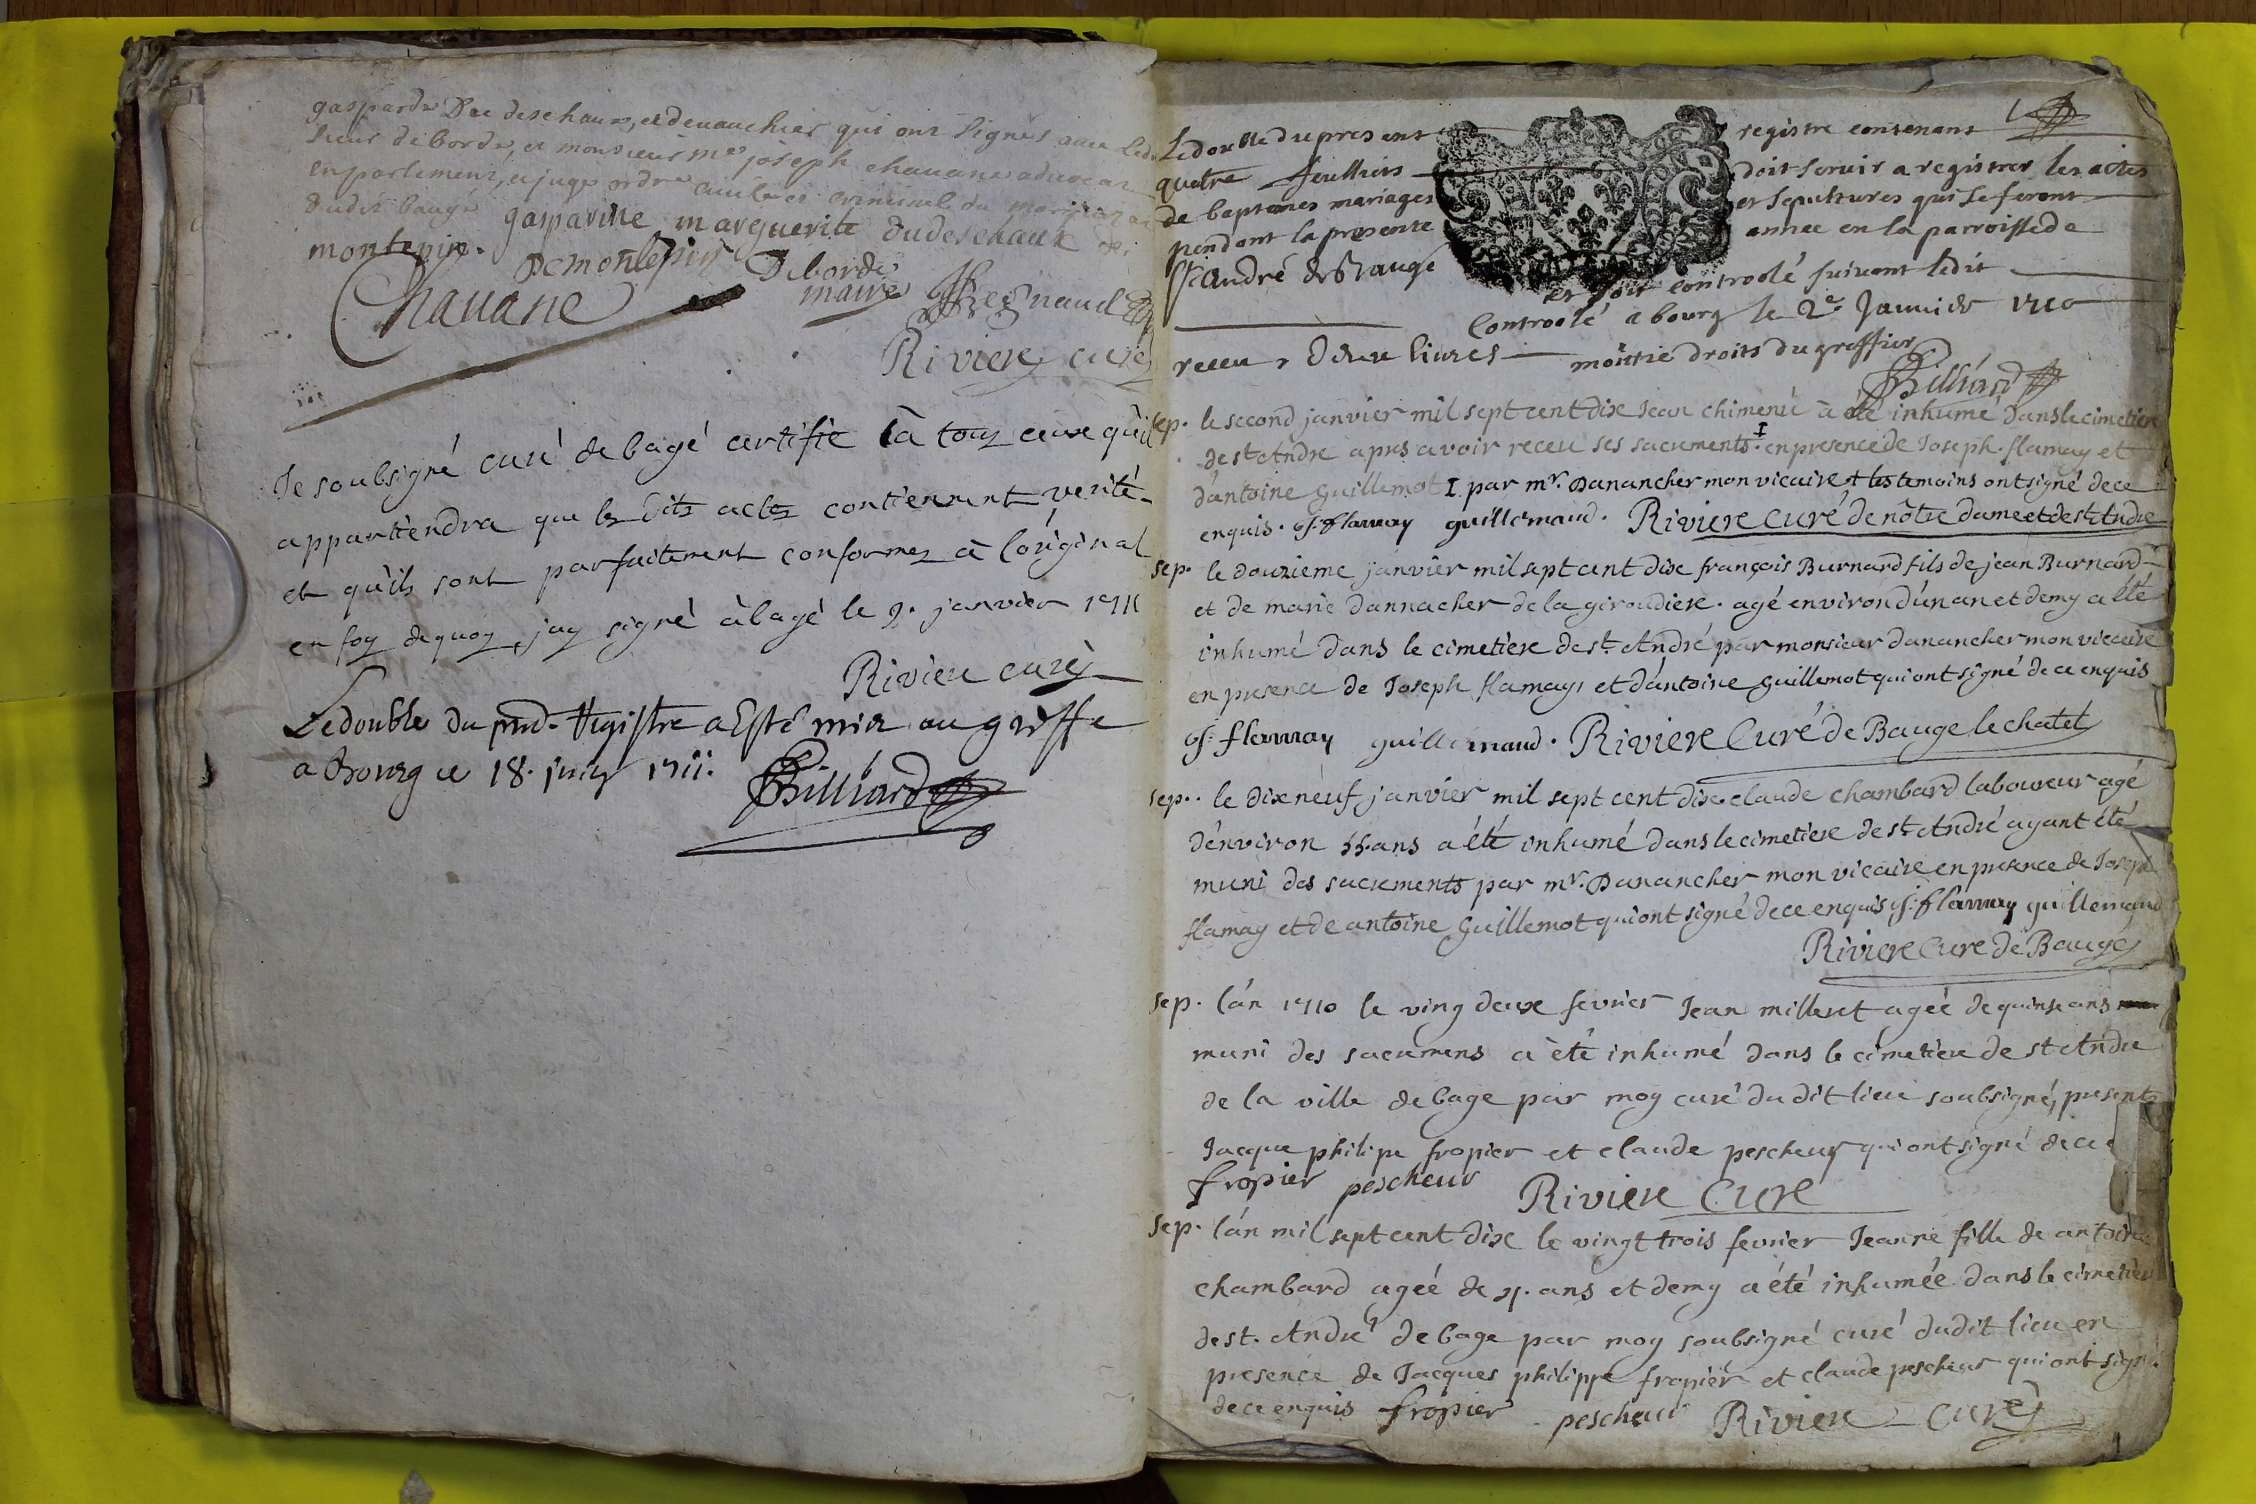 gasparde Duc deschaux, et devauchier qui ont signés avec ledit
sieur deborde, et monsieur me joseph chavane advocat
en parlement, et juge ordre civile et criminel du marquisat
dudit baugé
montepin. gasparine marguerite dudeschaux
Demontepin Deborde
maire
Chavane
Regnaud
Riviere curé
Je soubsigné curé de bagé certifie à tous ceux qu'il
appartiendra que les dits actes contiennent verité
et qu'ils sont parfaitement conformes à l'original
en foy dequoy j'ay signé à bagé le 9. janvier 1711
Riviere curé
Le double du pnt. Registre a Esté mis au greffe
a Bourg ce 18. juin 1711.
Billiard
Le double du present registre contenant 1
quatre feulliets doit servir a registrer les actes
de baptemes mariages et sepultures qui se feront
pendant la presente année en la parroisse de
St André de Baugé et soit controolé suivant ledit
Controolé a bourg le 2e Janvier 1710
receu, Deux livres moitié droits du greffier
Billiard
sep. le second janvier mil sept cent dix Jean chimenu à été inhumé dans le cimetiere
de st Andre apres avoir receu ses sacrements. I en presence de Joseph flamay et
d'antoine Guillemot I par mr. Danancher mon vicaire et les temoins ont signé de ce
enquis. J. flamay guillemaud. Riviere Curé de nôtre dame et de st Andre
sep. le douzieme janvier mil sept cent dix françois Burnard fils de jean Burnard
et de marie dannacher de la giroudiere. agé environ d'un an et demy a été
inhumé dans le cimetiere de st. André par monsieur danancher mon viccaire
en presence de Joseph flamay, et d'antoine guillemot qui ont signé de ce enquis
J. flamay guillemaud. Riviere Curé de Bauge le chatel
sep. le dixneuf janvier mil sept cent dix claude chambard laboureur agé
d'environ 55. ans a été inhumé dans le cimetiere de st André ayant été
muni des sacrements par mr. Danancher mon vicaire en presence de Joseph
flamay et de antoine Guillemot qui ont signé de ce enquis J. flamay guillemaud
Riviere Cure de Baugé
sep. l'an 1710 le ving deux fevrier Jean milleret ageé de quinse ans
muni des sacremens a été inhumé dans le cimetiere de st Andre
de la ville de bage par moy curé du dit lieu soubsigné, presents
Jacque philipe fropier et claude pescheur qui ont signé de ce
fropier pescheur Riviere Curé
sep. l'an mil sept cent dix le vingt trois fevrier Jeanne fille de antoine
chambard ageé de 4. ans et demy a été inhumée dans le cimetiere
de st. André de bage par moy soubsigné curé dudit lieu en
presence de Jacques philippe fropier et claude pescheur qui ont signé
de ce enquis fropier pescheur Riviere Curé